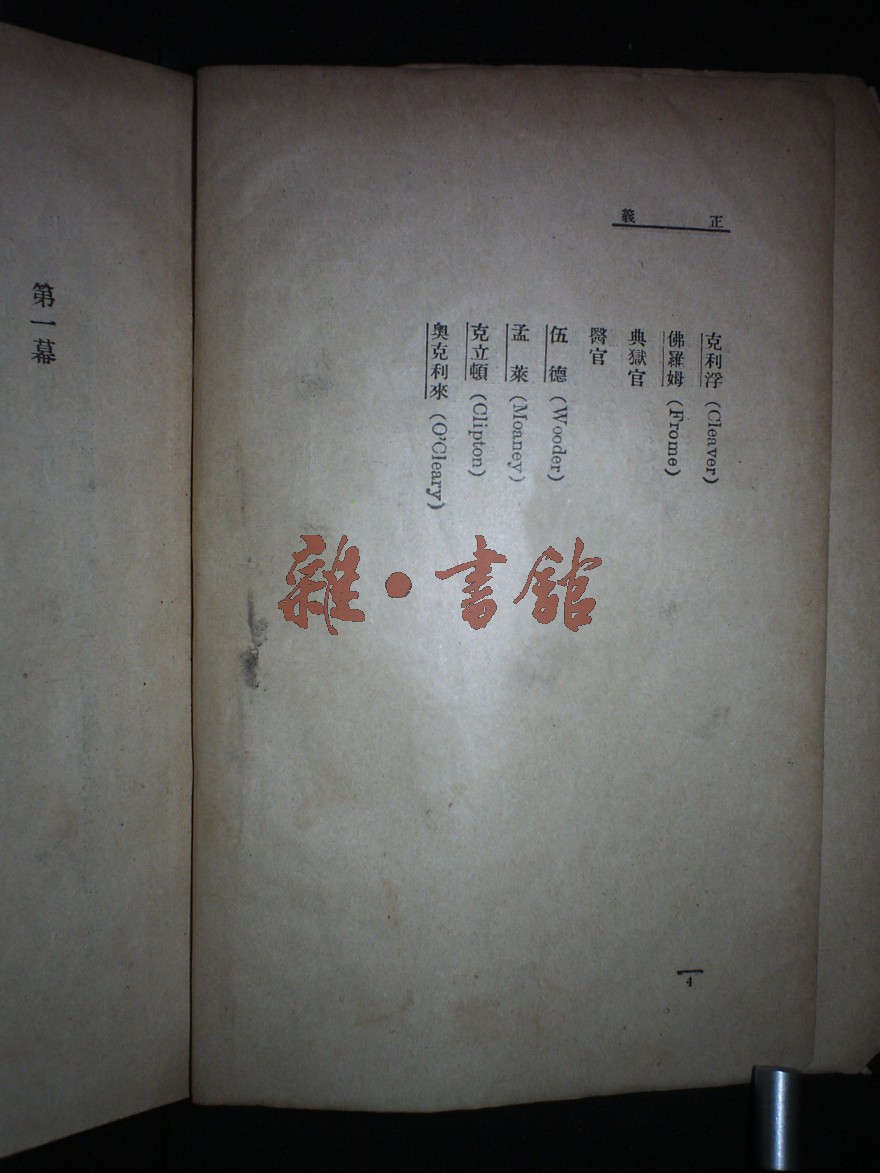 正義
克利浮 (Cleaver)
佛羅姆 (Frome)
典獄官
醫官
伍德 (Wooder)
孟萊 (Moaney)
克立頓 (Clipton)
奧克利來 (O'Cleary)
4
第一幕
雜·書館